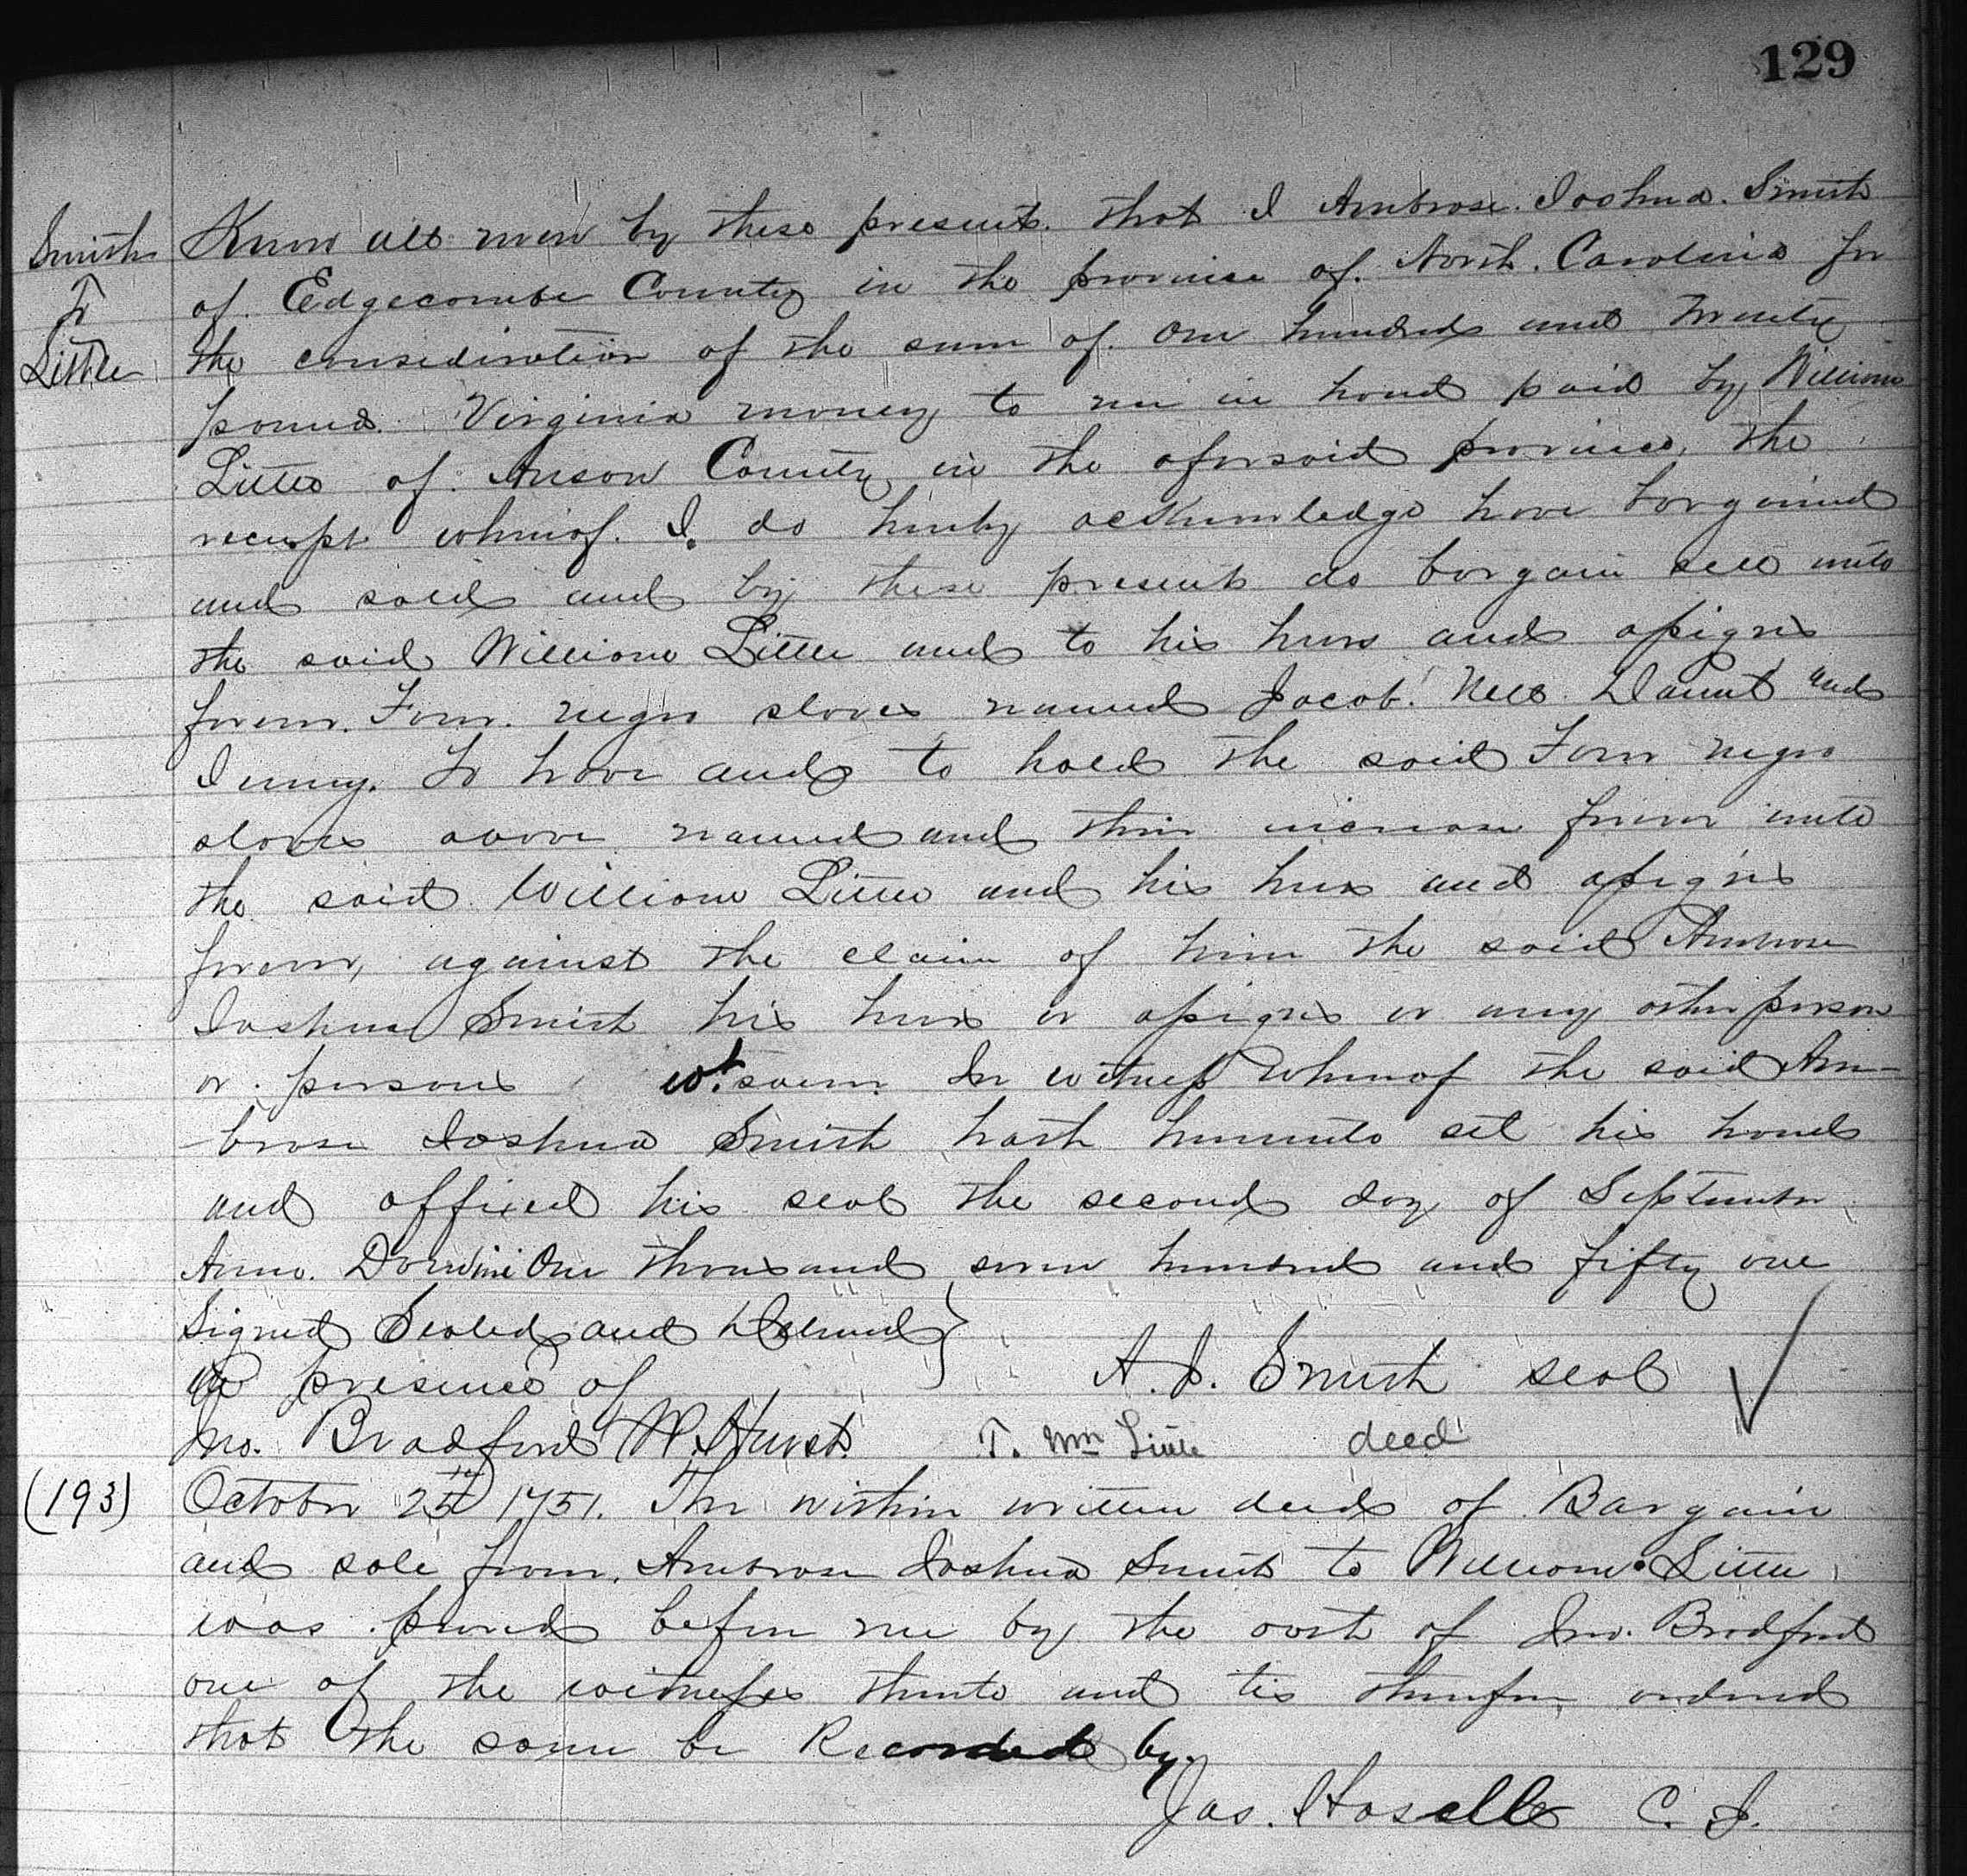 129
Smith
To
Little
Know all men by these presents. that I Ambrose. Joshua. Smith
of Edgecombe County in the province of. North. Carolina for
the consideration of the sum of. One hundred and twenty
pound. Virginia money to me in hand paid by William
Little of. Anson County in the aforsaid province, the
receipt whereof. I. do hereby acknowledge have bargained
and sold and by these presents do bargain sell unto
the said William Little and to his heirs and assigns
forever. Four. negro slaves named Jacob. Nell. Daunt and
Jenny. To have and to hold the said Four negro
slaves above named and their increase forever unto
the said William Little and his heirs and assigns
forever, against the claim of him the said Ambrose
Joshua Smith his heirs or assigns or any other person
or persons wt.soever In witness whereof the said Am-
-brose Joshua Smith hath hereunto set his hand
and affixed his seal the second day of September
Anno. Domini One thousand seven hundred and fifty one
Signed Sealed and Delivered }
in presence of
A. J. Smith seal
Jno. Bradford W. Hurst. T. Wm Little deed
(193)
October 25th 1751. The within written deed of Bargain
and sale from. Ambrose Joshua Smith to William Little
was proved before me by the oath of Jno. Bradford
one of the witnesses thereto and tis therefore ordered
that the same be Recorded by.
Jas. Hasell C. J.